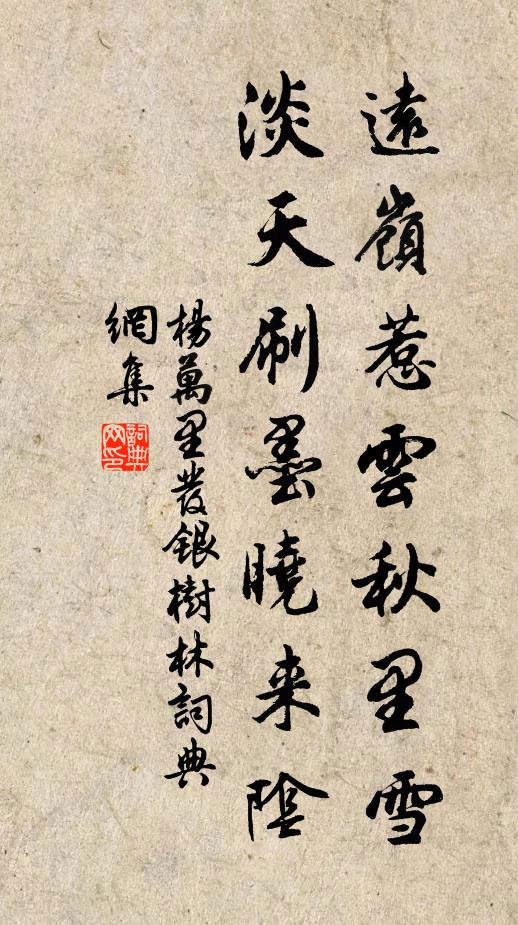 遠嶺惹雲秋里雪
淡天刷墨曉来陰
楊萬里發銀樹林詞典
網集
詞典
网印